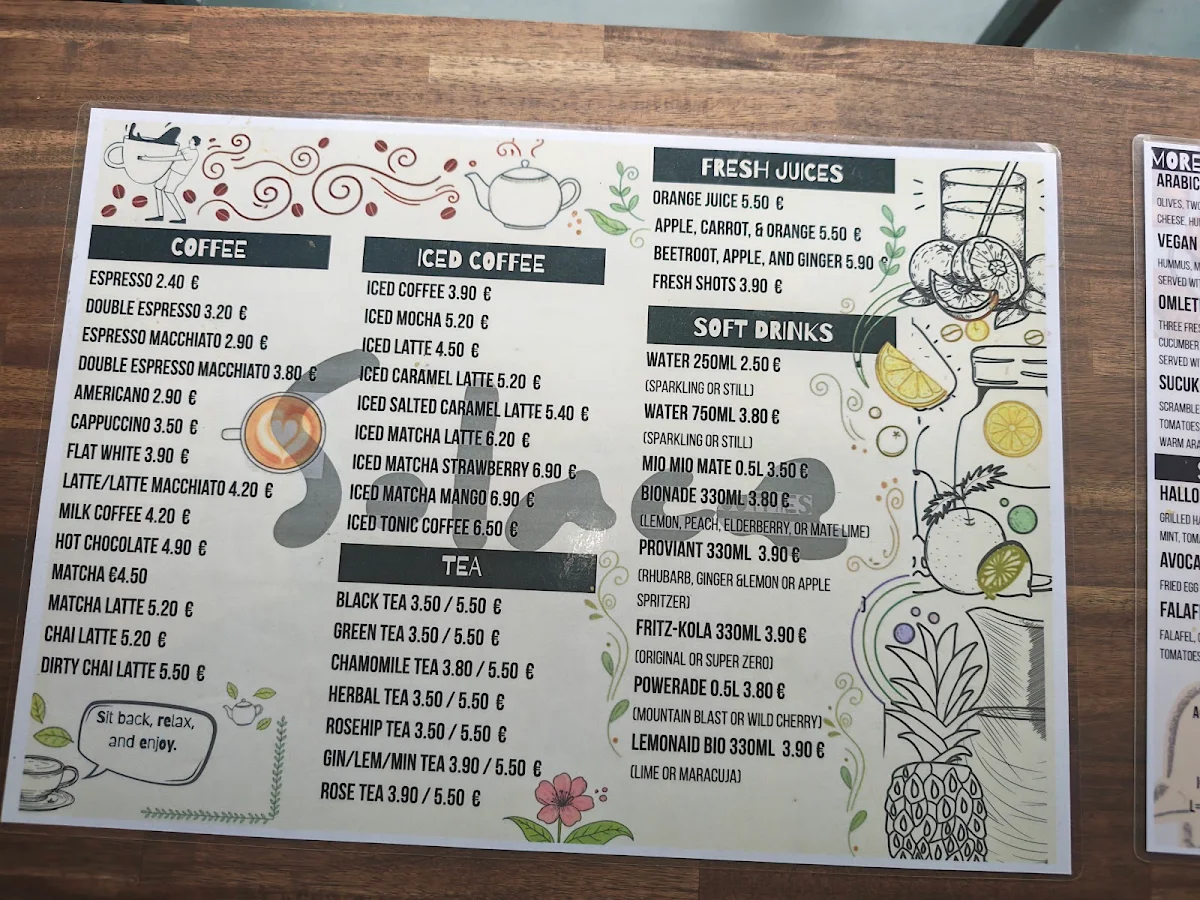 COFFEE
ESPRESSO 2.40 €
DOUBLE ESPRESSO 3.20 €
ESPRESSO MACCHIATO 2.90 €
DOUBLE ESPRESSO MACCHIATO 3.80 €
AMERICANO 2.90 €
CAPPUCCINO 3.50 €
FLAT WHITE 3.90 €
LATTE/LATTE MACCHIATO 4.20 €
MILK COFFEE 4.20 €
HOT CHOCOLATE 4.90 €
MATCHA €4.50
MATCHA LATTE 5.20 €
CHAI LATTE 5.20 €
DIRTY CHAI LATTE 5.50 €
Sit back, relax,
and enjoy.
ICED COFFEE
ICED COFFEE 3.90 €
ICED MOCHA 5.20 €
ICED LATTE 4.50 €
ICED CARAMEL LATTE 5.20 €
ICED SALTED CARAMEL LATTE 5.40 €
ICED MATCHA LATTE 6.20 €
ICED MATCHA STRAWBERRY 6.90 €
ICED MATCHA MANGO 6.90 €
ICED TONIC COFFEE 6.50 €
TEA
BLACK TEA 3.50 / 5.50 €
GREEN TEA 3.50 / 5.50 €
CHAMOMILE TEA 3.80 / 5.50 €
HERBAL TEA 3.50 / 5.50 €
ROSEHIP TEA 3.50 / 5.50 €
GIN/LEM/MIN TEA 3.90 / 5.50 €
ROSE TEA 3.90 / 5.50 €
Solace
FRESH JUICES
ORANGE JUICE 5.50 €
APPLE, CARROT, & ORANGE 5.50 €
BEETROOT, APPLE, AND GINGER 5.90 €
FRESH SHOTS 3.90 €
SOFT DRINKS
WATER 250ML 2.50 €
(SPARKLING OR STILL)
WATER 750ML 3.80 €
(SPARKLING OR STILL)
MIO MIO MATE 0.5L 3.50 €
BIONADE 330ML 3.80 €
(LEMON, PEACH, ELDERBERRY, OR MATE LIME)
PROVIANT 330ML 3.90 €
(RHUBARB, GINGER &LEMON OR APPLE
SPRITZER)
FRITZ-KOLA 330ML 3.90 €
(ORIGINAL OR SUPER ZERO)
POWERADE 0.5L 3.80 €
(MOUNTAIN BLAST OR WILD CHERRY)
LEMONAID BIO 330ML 3.90 €
(LIME OR MARACUJA)
MORE
ARABIC
OLIVES, TWO
VEGAN
SERVED
OMLET
CUCUMBER
SERVED
SUCUK
TOMATOES
HALLO
AVOCA
FRIED EGG
FALAFEL,
TOMATOES